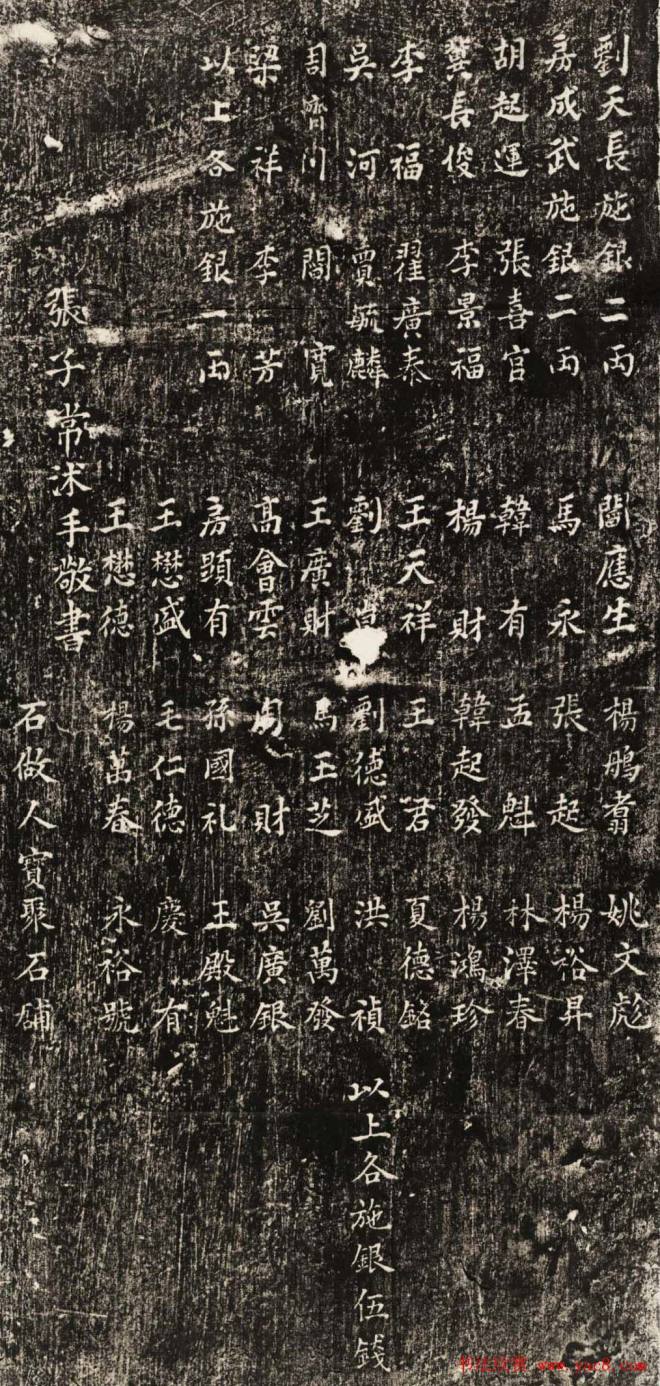 劉天長施銀二兩 閻應生 楊鵬翥 姚文彪
房成武施銀二兩 馬永 張起 楊裕昇
胡起運 張喜官 韓有 孟魁 林澤春
冀長俊 李景福 楊財 韓起發 楊鴻珍
李福 翟廣泰 王天祥 王君 夏德銘
吳河 賈毓麟 劉 劉德盛 洪禎 以上各施銀伍錢
周齊川 閻寬 王廣財 馬玉芝 劉萬發
梁祥 李芳 高會雲 周財 吳廣銀
以上各施銀一兩 房顕有 孫國礼 王殿魁
王懋盛 毛仁德 慶有
王懋德 楊萬春 永裕號
張子常沐手敬書
石做人寶聚石舖
书法欣赏 www.yac8.com